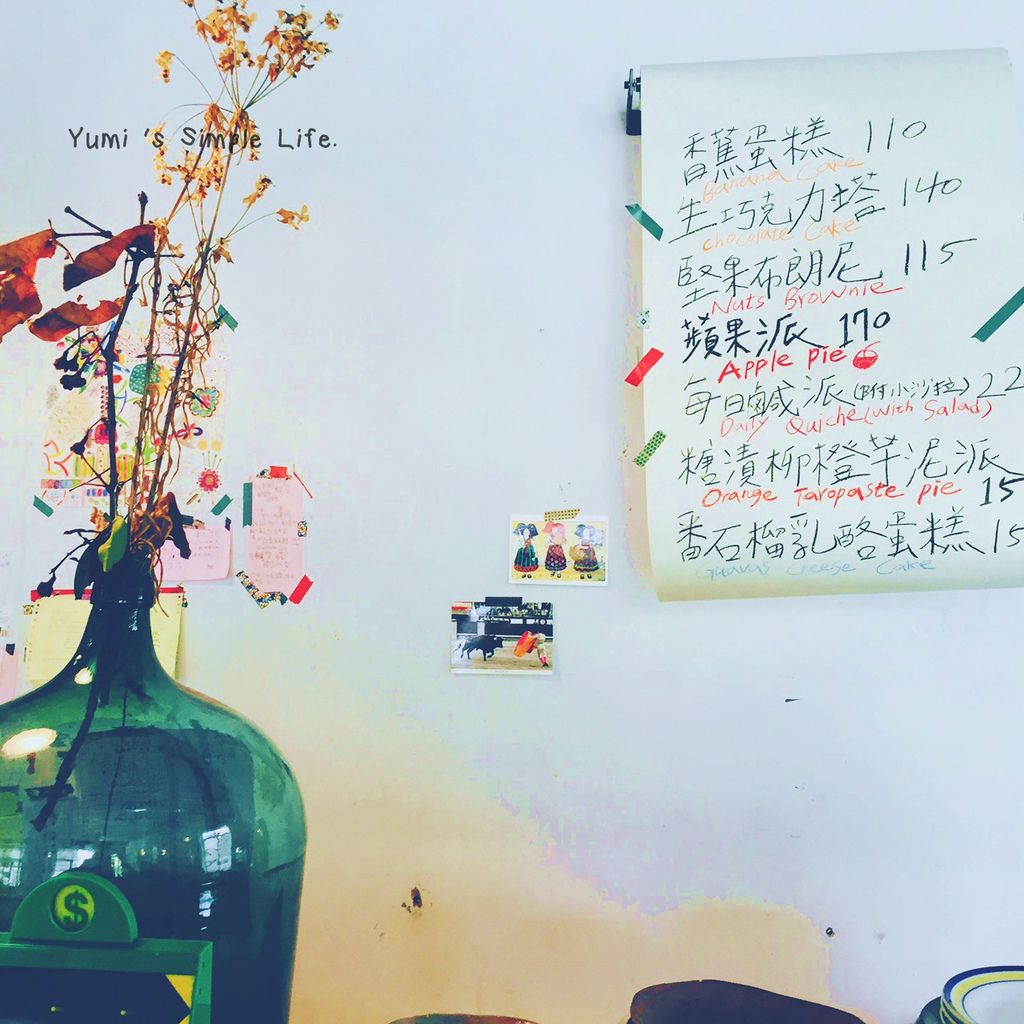 Yumi 's Simple Life.
香蕉蛋糕 110
Banana Cake
生巧克力塔 140
chocolate Cake
堅果布朗尼 115
Nuts Brownie
蘋果派 170
Apple pie
每日鹹派(附小沙拉) 22
Daity Quiche(with Salad)
糖漬柳橙芋泥派 15
Orange Taropaste pie
番石榴乳酪蛋糕 15
Guavas Cheese Cake
$